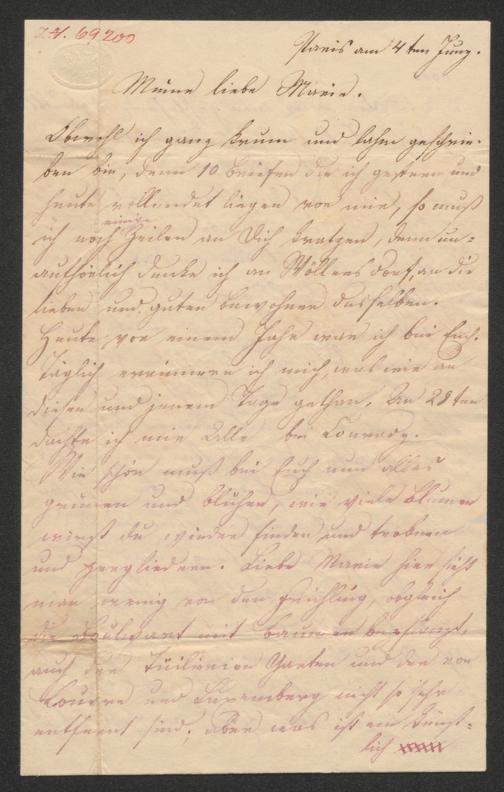 I.N. 69200
Paris am 4ten Juny.
Meine liebe Marie.
Obwohl ich ganz krum und lahm geschrie-
ben bin, denn 10 Briefen die ich gestern und
heute vollendet liegen vor mir, so muß
ich noch einige Zeilen an Dich kratzen, denn un-
aufhörlich denke ich an Wöllersdorf, an die
lieben und guten Bewohner desselben.
Heute vor einem Jahr war ich bei Euch.
Täglich erinnere ich mich was wir an
diesen und jenem Tage gethan. Am 28ten
dachte ich wie Alle bei
Wie schön muß bei Euch nun alles
grünen und blühen, wie viele Blumen
wirst du wieder finden und troknen
und zergliedern. Liebe Marie hier sieht
man wenig von den Frühling, obgleich
die Boulevart mit Baumen
auch der Tuilerien Garten und der von
Louvre und Luxemberg nicht so sehr
entfernt sind; aber was ist ein künst-
lich